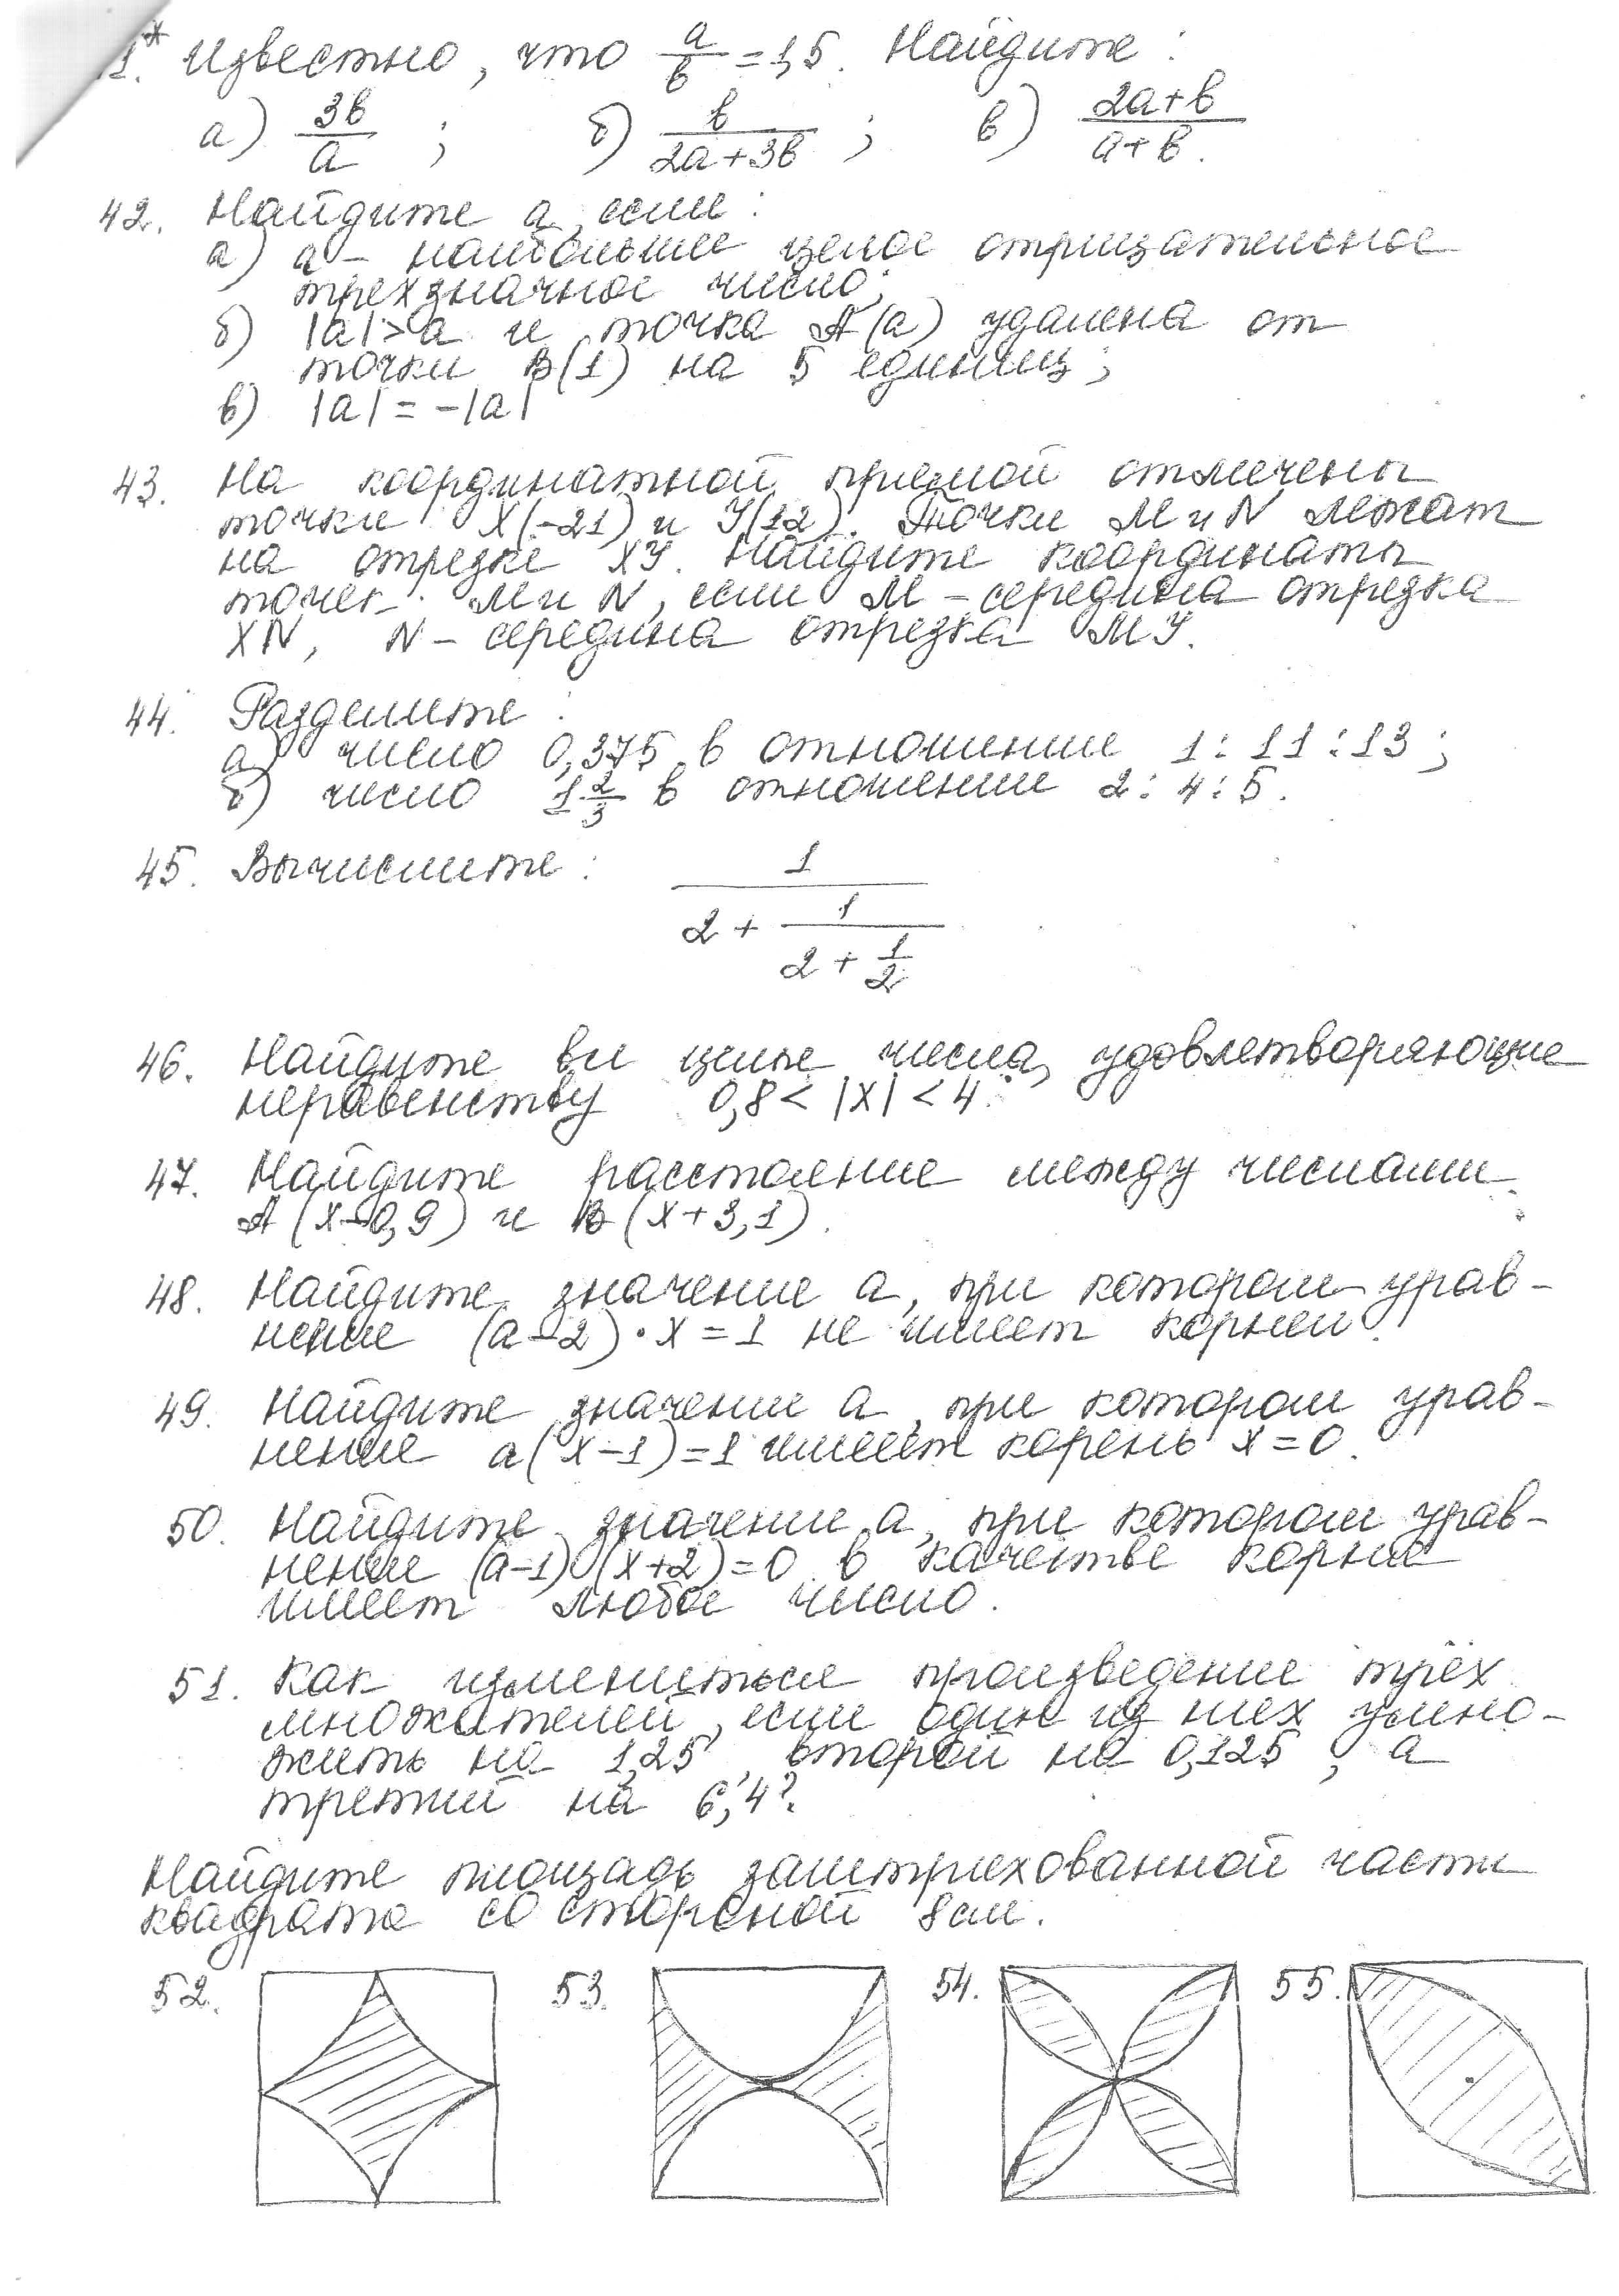 1.* Известно, что a/b = 1,5. Найдите:
а) 3b/a ; б) b/(2a+3b) ; в) (2a+b)/(a+b).
42. Найдите a, если:
а) a – наибольшее целое отрицательное
трехзначное число;
б) |a|>a и точка A(a) удалена от
точки B(1) на 5 единиц;
в) |a| = -|a|
43. На координатной прямой отмечены
точки X(-21) и У(12). Точки M и N лежат
на отрезке XУ. Найдите координаты
точек M и N, если M – середина отрезка
XN, N – середина отрезка MУ.
44. Разделите:
а) число 0,375 в отношении 1:11:13;
б) число 1 2/3 в отношении 2:4:5.
45. Вычислите: 1/(2 + 1/(2 + 1/2))
46. Найдите все целые числа, удовлетворяющие
неравенству 0,8 < |x| < 4.
47. Найдите расстояние между числами
A(x-0,9) и B(x+3,1).
48. Найдите значение a, при котором урав-
нение (a-2)·x=1 не имеет корней.
49. Найдите значение a, при котором урав-
нение a(x-1)=1 имеет корень x=0.
50. Найдите значение a, при котором урав-
нение (a-1)(x+2)=0 в качестве корня
имеет любое число.
51. Как измениться произведение трёх
множителей, если один из них умно-
жить на 1,25, второй на 0,125, а
третий на 6,4?
Найдите площадь заштрихованной части
квадрата со стороной 8 см.
52. 53. 54. 55.